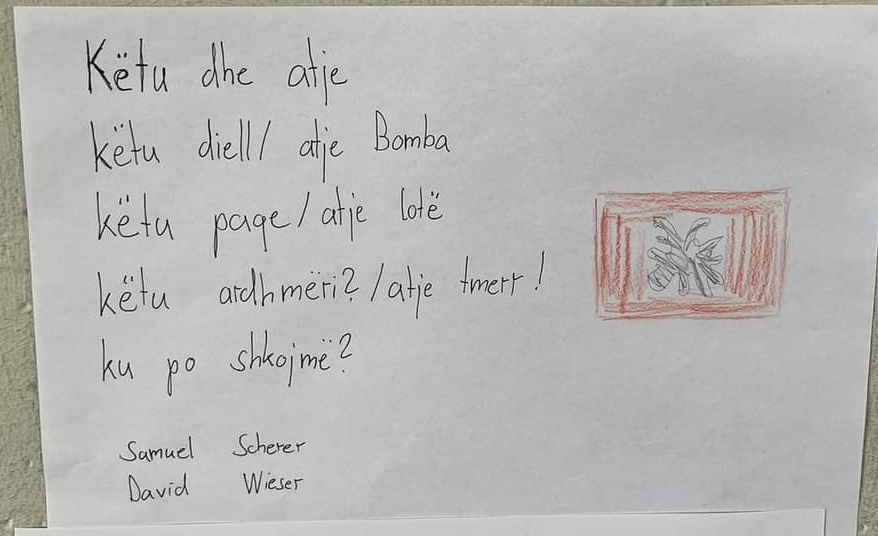 Këtu dhe atje
këtu diell/ atje Bomba
këtu page/atje lotë
këtu ardhmëri?/atje tmerr!
ku po shkojmë?
Samuel Scherer
David Wieser